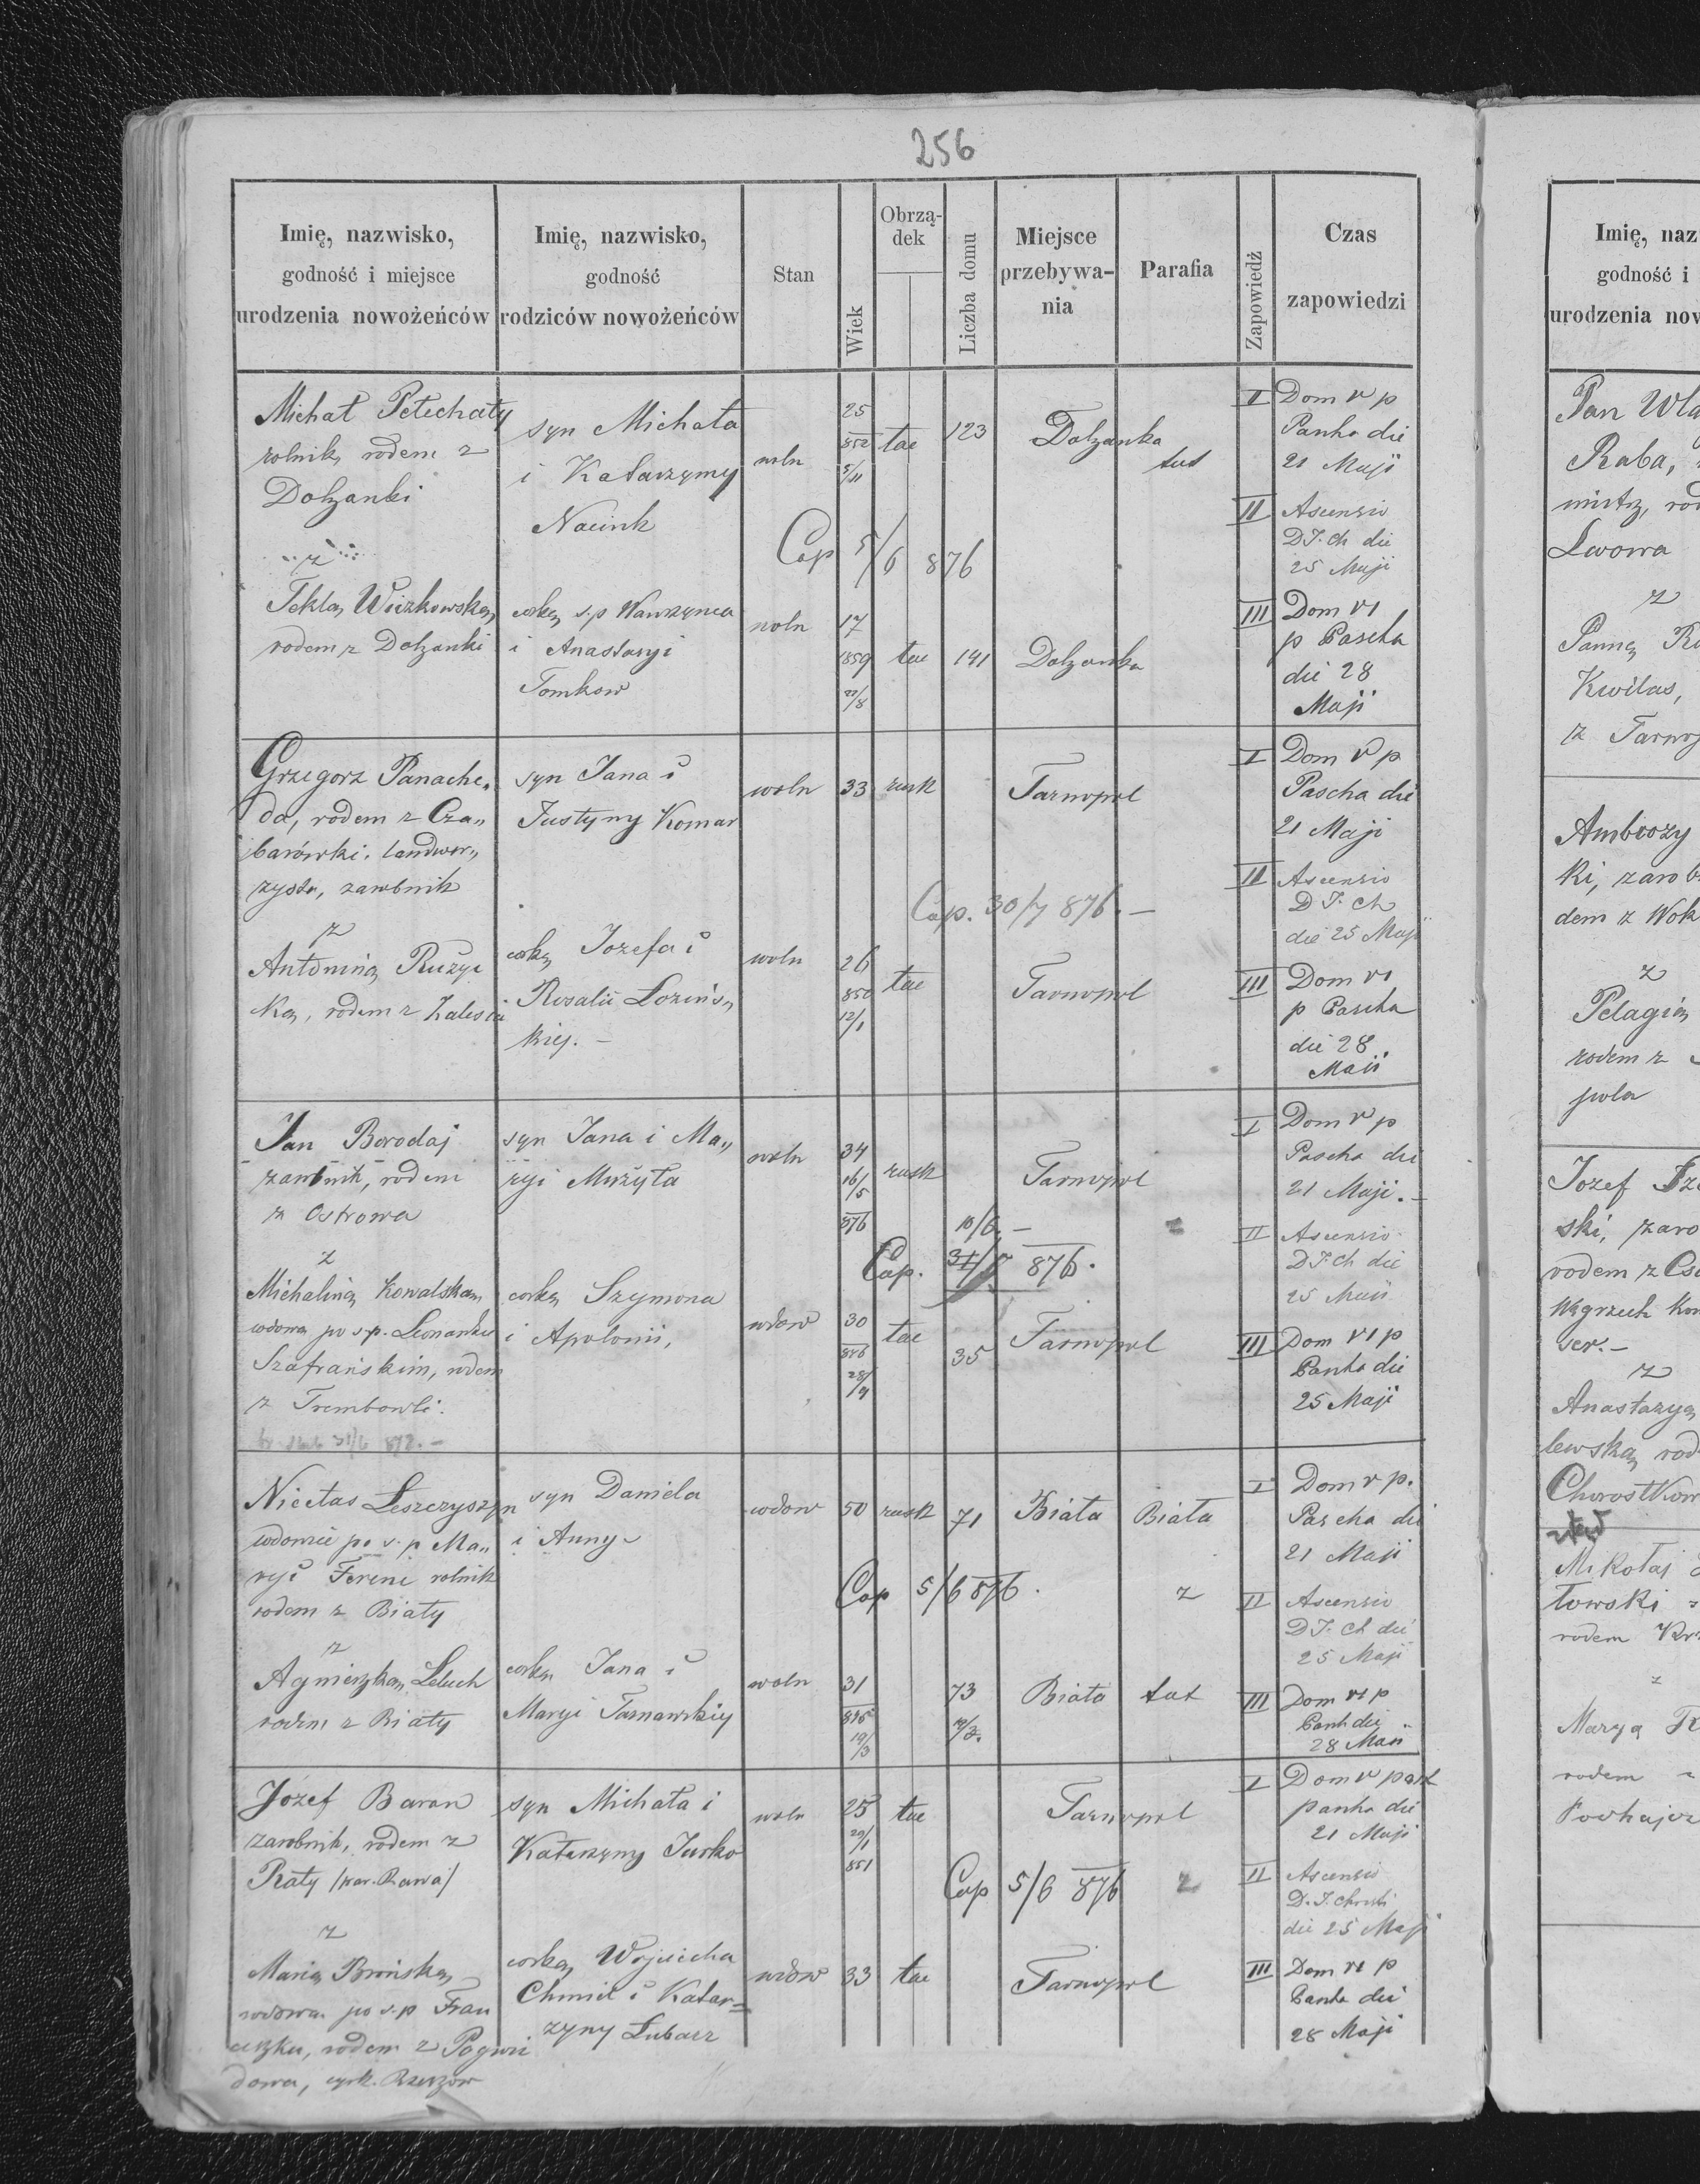 256
Imię, nazwisko,
godność i miejsce
urodzenia nowożeńców
Imię, nazwisko,
godność
rodziców nowożeńców
Stan
Wiek
Obrzą-
dek
Liczba domu
Miejsce
przebywa-
nia
Parafia
Zapowiedź
Czas
zapowiedzi
Michał Petechaty
rolnik, rodem z
Dołzanki
z
Teklą
rodem z Dołzanki
syn Michała
i Katarzyny
córką s.p Wawrzyńca
i Anastazyi
Tomkow
woln
woln
25
852
5/11
17
1859
22/8
łac
łac
123
141
Dołzanka
tut
Dołzanka
Cop 5/6 876
I Dom V p
Pascha die
21 Maji
II Ascensio
D J. Ch die
25 Maji
III Dom VI
p Pascha
die 28
Maji
Grzegorz Panache„
da, rodem z Cza„
barówki, landwer„
zysta, zarobnik
z
Antoniną Ruzyc
ką, rodem z Zalesia
syn Jana i
Justyny Komar
córką Jozefa i
Rozalii Łozińs„
kiej. –
woln
woln
33
26
850
12/1
rusk
łac
Tarnopol
Tarnopol
Cop. 30/7 876. –
I Dom V p
Pascha die
21 Maji
II Ascensio
D J. Ch
die 25 Maji
III Dom VI
p Pascha
die 28
Maii
Jan Borodaj
zarobnik, rodem
z Ostrowa
z
Michaliną Kowalską
wdową po s.p. Leonardzie
Szafrańskim, rodem
z Trembowli.
syn Jana i Ma„
ryi Mużyła
córką Szymona
i Apolonii,
woln
wdow
34
16/5
876
30
28/9
rusk
łac
35
Tarnopol
Tarnopol
10/6 –
Cop. 876.
I Dom V p
Pascha die
21 Maji. –
II Ascensio
D J. Ch die
25 Maii
III Dom VI p
Pascha die
25 Maji
Nicetas Leszczyszyn
wdowiec po s. p Ma„
ryi Ferini rolnik
rodem z Biały
z
Agnieszką Leluch
rodem z Biały
syn Daniela
i Anny
córką Jana i
Maryi Tarnawskiej
wdow
woln
50
31
845
19/3
rusk
71
73
Biała
Biała
Biała
tut
Cop 5/6 876.
z
I Dom V p.
Pascha die
21 Maji
II Ascensio
D J. Ch die
25 Maji
III Dom VI p
Pasch die
28 Maii
Józef Baran
zarobnik, rodem z
Raty /par. Rawa/
z
Marią Brońską
wdową po s.p Fran
ciszku, rodem z Pogwi
dowa, cyrk. Rzeszów
syn Michała i
Katarzyny Jurko
córką Wojciecha
Chmiel i Katar=
zyny Lubasz
woln
wdow
25
29/1
851
33
łac
łac
Tarnopol
Tarnopol
Cop 5/6 876
z
I Dom V post
pascha die
21 Maji
II Ascensio
D. J. Christi
die 25 Maji
III Dom VI p
Pascha die
28 Maji
Imię, naz
godność i
urodzenia now
Raba,
mistrz, rod
Lwowa
z
Panną
Kwilas,
z Tarnop
Ambrozy
ki, zarob
dem z Wok
z
Pelagią
rodem z
pola
Jozef
ski, zaro
rodem z
z
Anastazyą
lewską rod
Chorostkow
Mikołaj
łowski
rodem
z
Maryą
rodem
Podhajcz